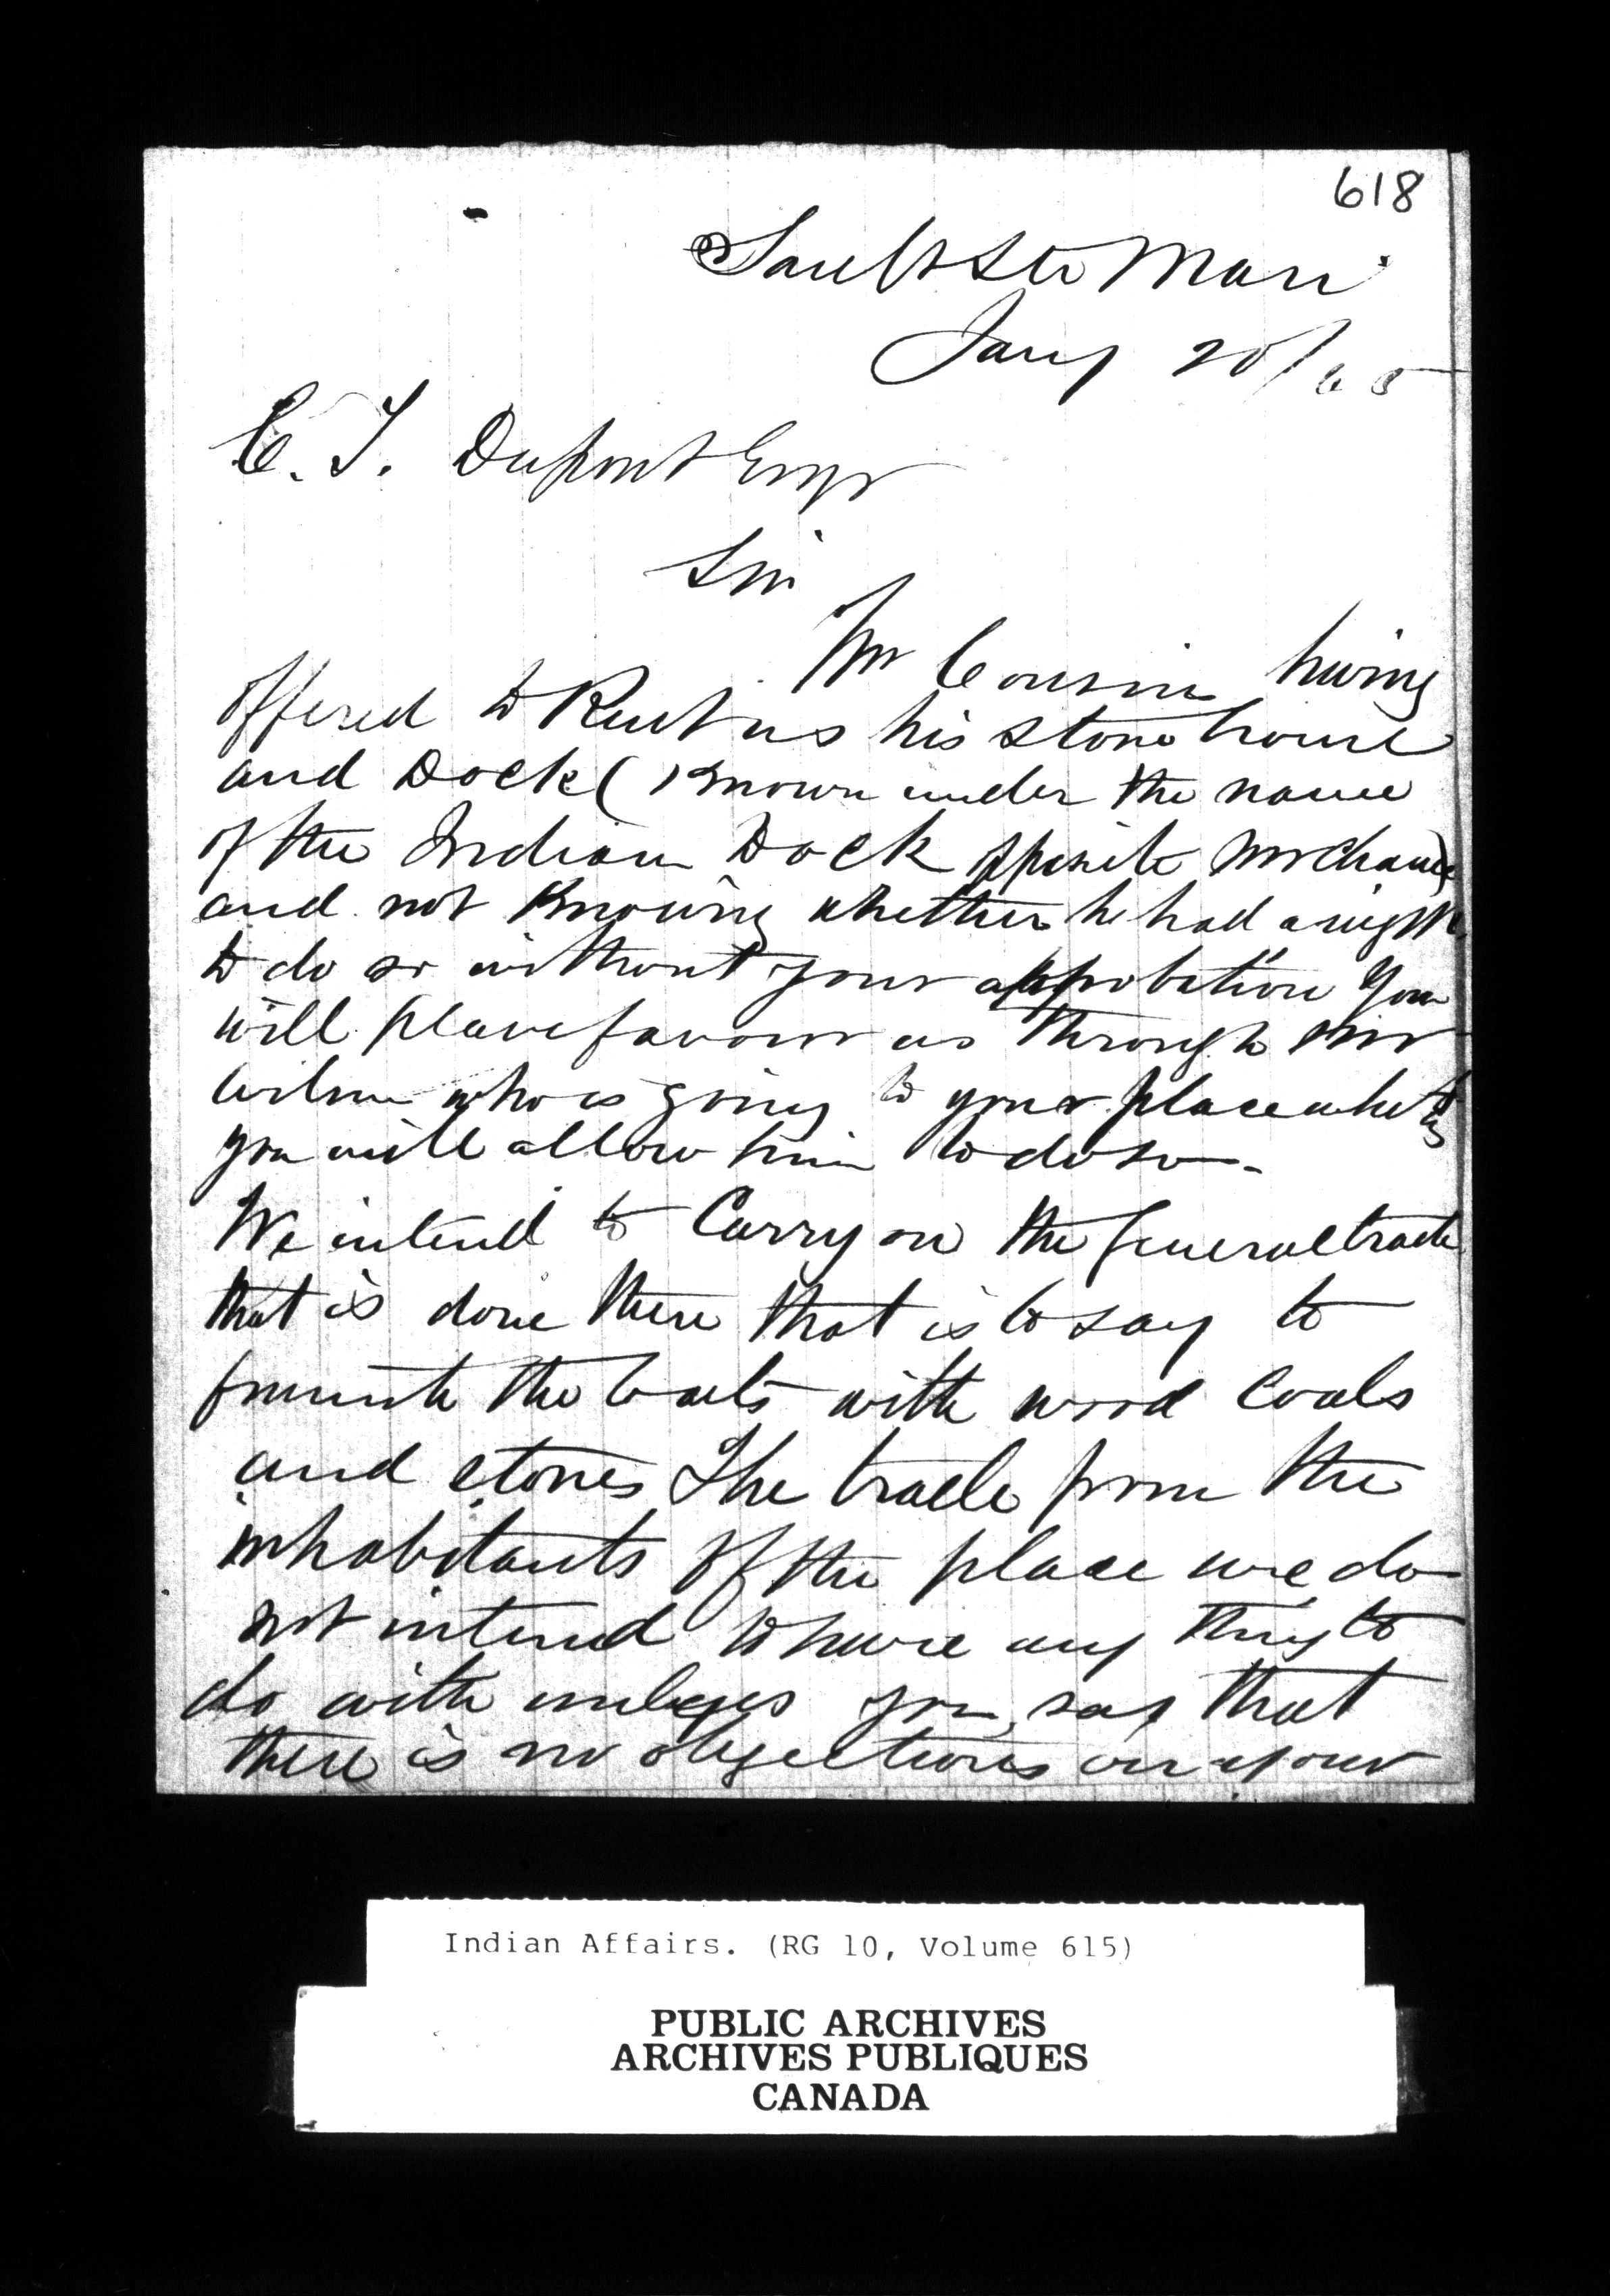 618
Sault Ste Marie
Jany 20/65
C. T. Dupont Esqr
Sir
Mr Cousins having
offered to Rent us his store house
and Dock (Known under the name
of the Indian Dock opposite Mr Chance)
and not Knowing whether he had a right
to do so without your approbation you
will please favour us through Mr
Wilson who is going to your place whether
you will allow him to do so—
We intend to Carry on the general trade
that is done there that is to say to
furnish the boats with wood Coals
and stores The trade from the
inhabitants of the place we do
not intend to have any thing to
do with unless you say that
there is no objections on your
Indian Affairs. (RG 10, Volume 615)
PUBLIC ARCHIVES
ARCHIVES PUBLIQUES
CANADA